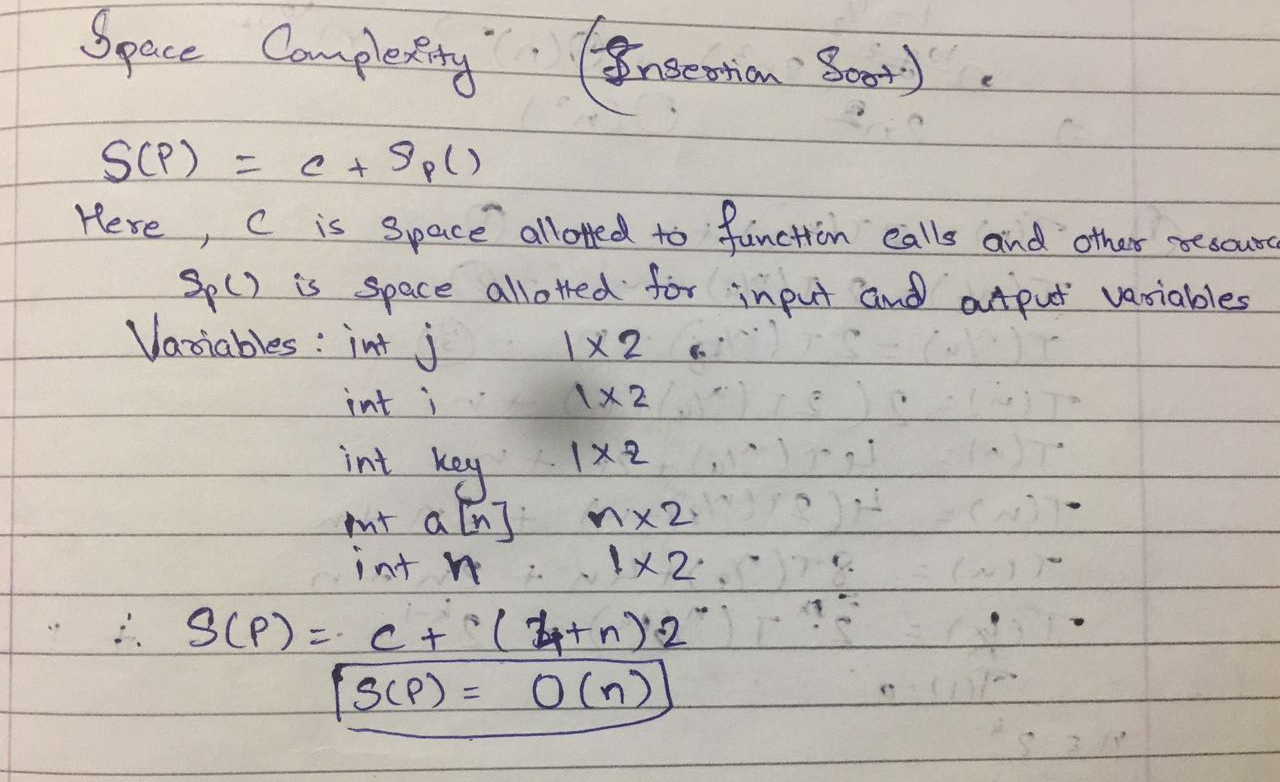 Space Complexity (Insertion Sort).
S(P) = c + Sp()
Here, C is space allotted to function calls and other resourc
Sp() is space allotted for input and output variables
Variables: int j 1×2
int i 1×2
int key 1×2
int a[n] n×2
int n 1×2
∴ S(P) = c + (4+n)2
S(P) = O(n)